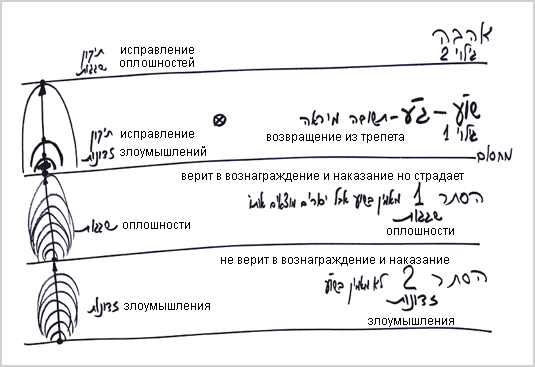 אהבה
גילוי 2
תיקון исправление
שגגות оплошностей
שו"ע – ג"ע – תשובה מיראה
גילוי 1
возвращение из трепета
תיקון исправление
זדונות злоумышлений
מחסום
верит в вознаграждение и наказание но страдает
הסתר 1 מאמין בשו"ע אבל אותו
שגגות
оплошности
שגגות оплошности
не верит в вознаграждение и наказание
הסתר 2 לא מאמין בשו"ע
זדונות
злоумышления
זדונות злоумышления